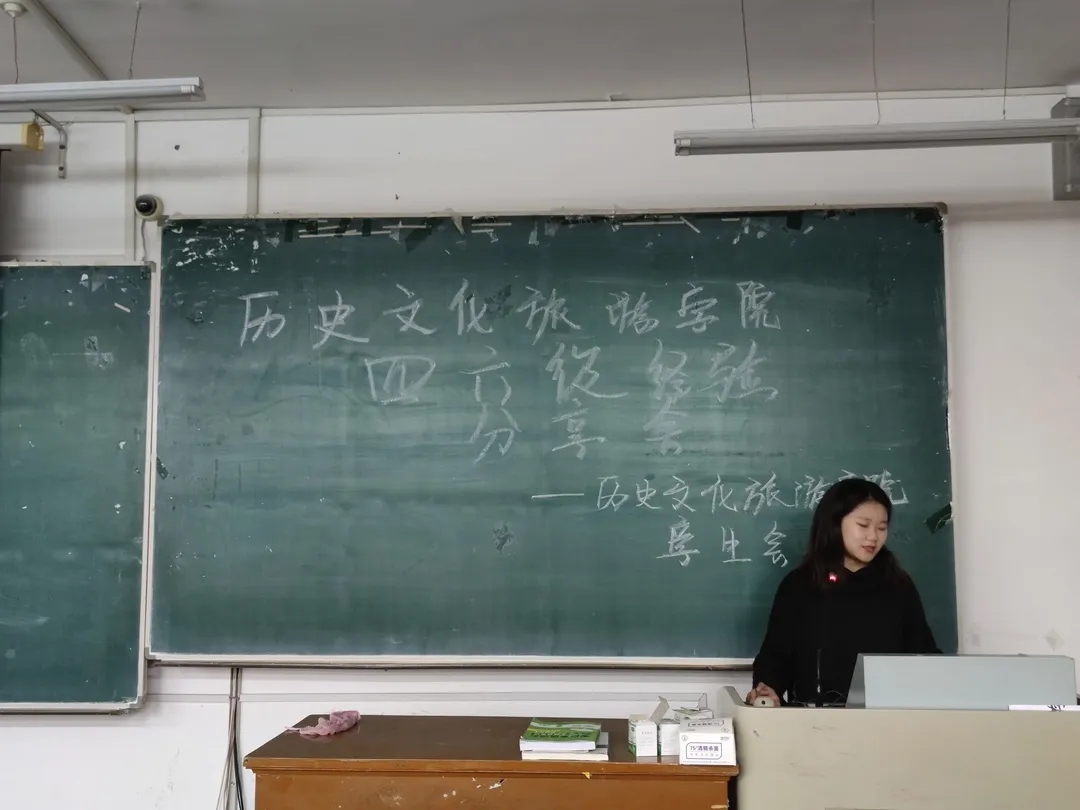 历史文化旅游学院
四六级经验
分享会
——历史文化旅游学院
学生会
75°酒精杀菌